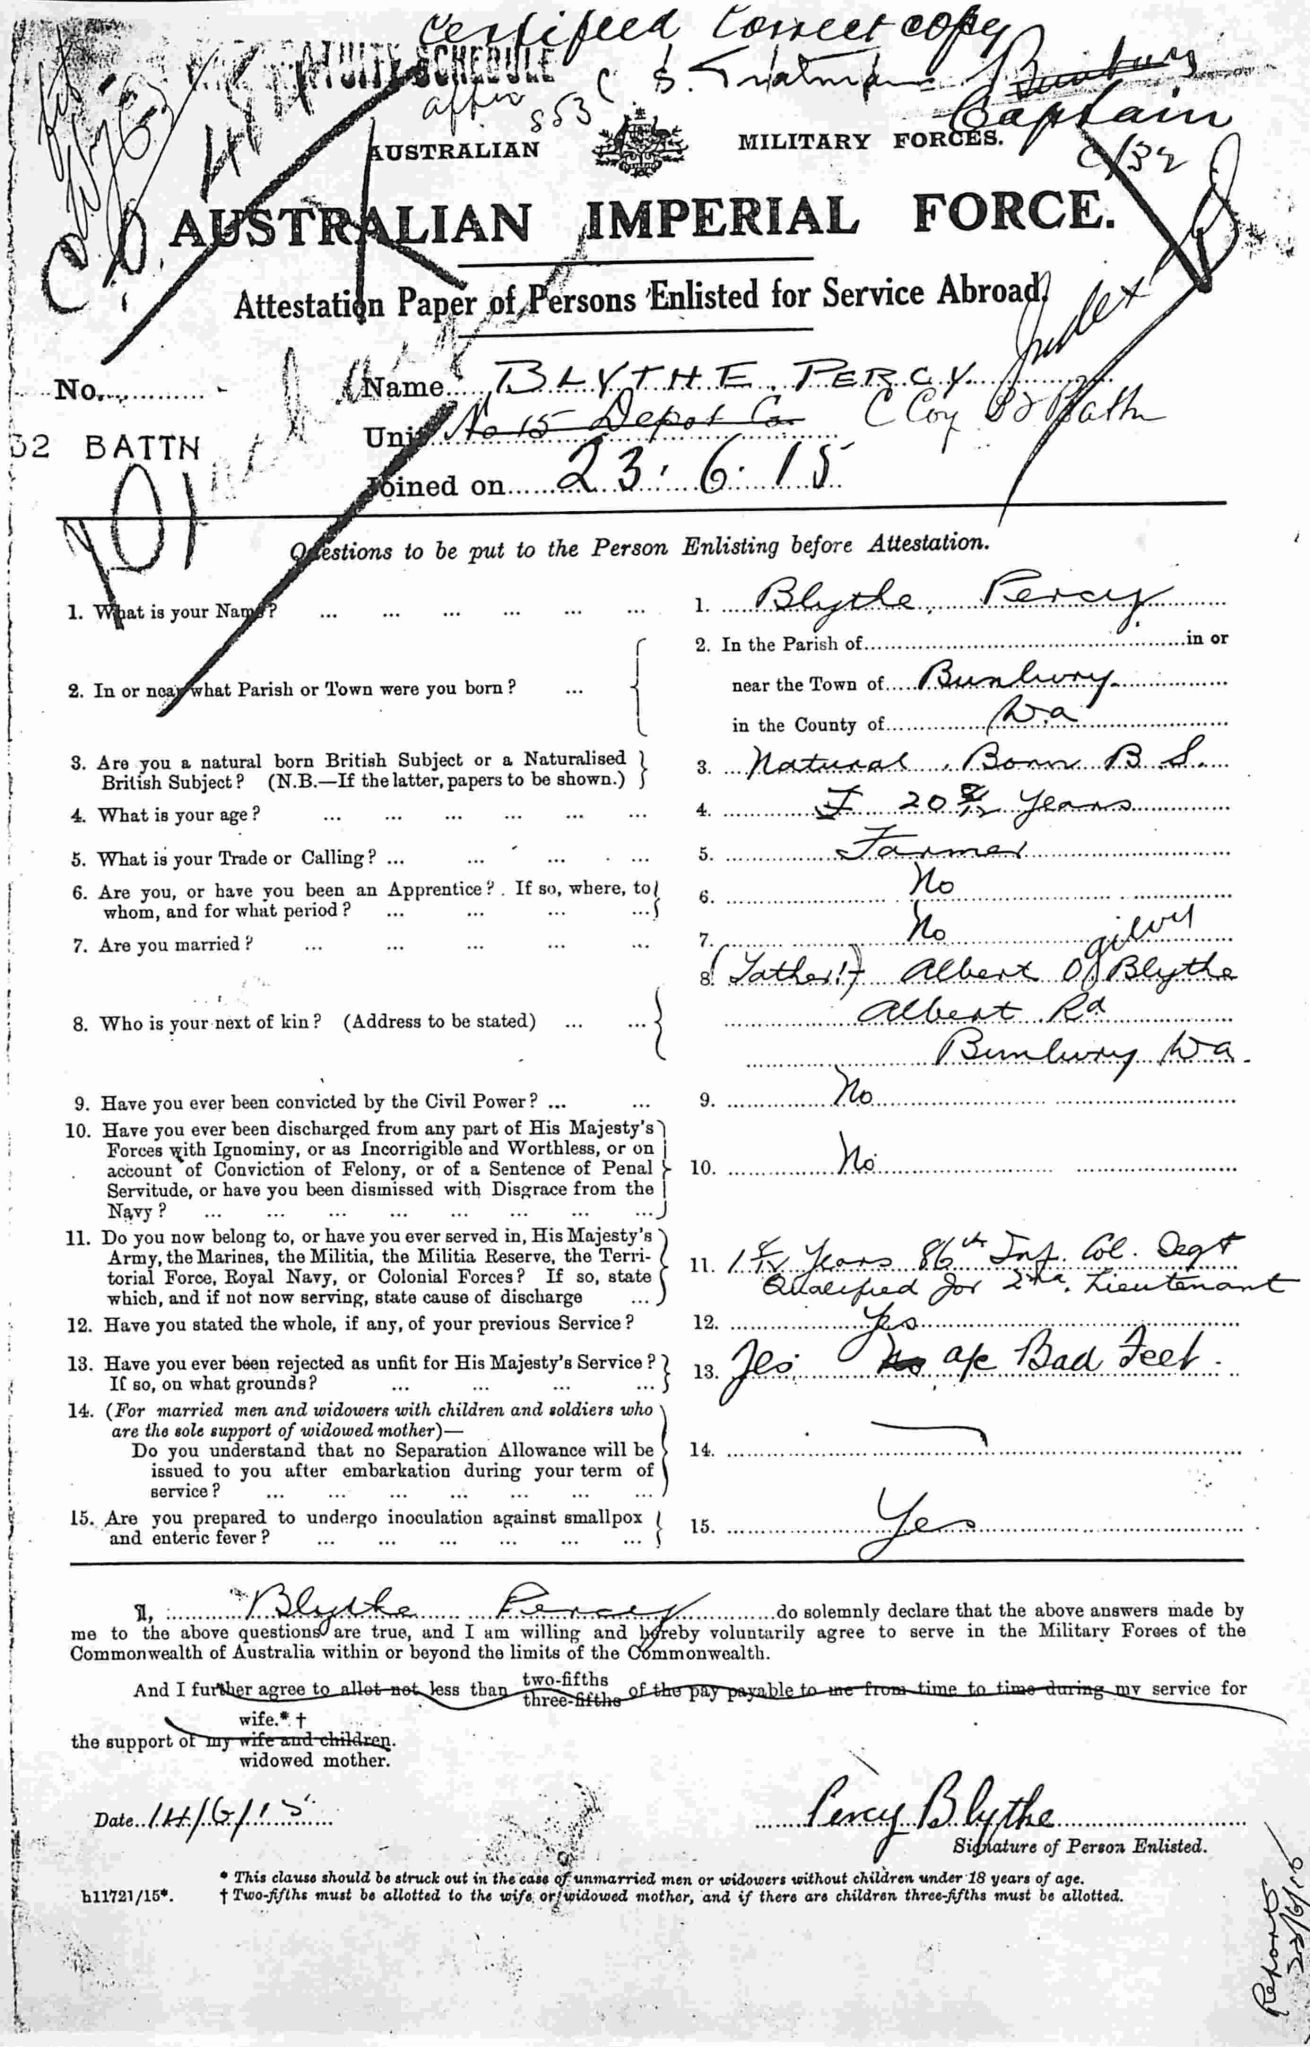 Certified correct copy
SCHEDULE
Captain
AUSTRALIAN MILITARY FORCES.
AUSTRALIAN IMPERIAL FORCE.
Attestation Paper of Persons Enlisted for Service Abroad.
No. Name BLYTHE PERCY
32 BATTN Unit No 15 Depot Co. C Coy 32 Battn
Joined on 23.6.15
Questions to be put to the Person Enlisting before Attestation.
1. What is your Name? ... ... ... ... ... ... 1. Blythe, Percy
2. In or near what Parish or Town were you born? ... 2. In the Parish of in or
near the Town of Bunbury
in the County of W.a
3. Are you a natural born British Subject or a Naturalised
British Subject? (N.B.—If the latter, papers to be shown.) 3. Natural Born B S.
4. What is your age? ... ... ... ... ... ... 4. 20 Years
5. What is your Trade or Calling? ... ... ... ... 5. Farmer
6. Are you, or have you been an Apprentice? If so, where, to
whom, and for what period? ... ... ... ... 6. No
7. Are you married? ... ... ... ... ... 7. No
8. Who is your next of kin? (Address to be stated) ... ... 8. (Father) Albert Ogilvy Blythe
Albert Rd
Bunbury Wa.
9. Have you ever been convicted by the Civil Power? ... ... 9. No
10. Have you ever been discharged from any part of His Majesty's
Forces with Ignominy, or as Incorrigible and Worthless, or on
account of Conviction of Felony, or of a Sentence of Penal
Servitude, or have you been dismissed with Disgrace from the
Navy? ... ... ... ... ... ... ... 10. No
11. Do you now belong to, or have you ever served in, His Majesty's
Army, the Marines, the Militia, the Militia Reserve, the Terri-
torial Force, Royal Navy, or Colonial Forces? If so, state
which, and if not now serving, state cause of discharge ... 11. Years 86th Inf.
Qualified for 2nd. Lieutenant
12. Have you stated the whole, if any, of your previous Service? 12. Yes
13. Have you ever been rejected as unfit for His Majesty's Service?
If so, on what grounds? ... ... ... 13. Yes. No a/c Bad Feet.
14. (For married men and widowers with children and soldiers who
are the sole support of widowed mother)—
Do you understand that no Separation Allowance will be
issued to you after embarkation during your term of
service? ... ... ... ... ... ... 14.
15. Are you prepared to undergo inoculation against smallpox
and enteric fever? ... ... ... ... ... 15. Yes
I, Blythe Percy do solemnly declare that the above answers made by
me to the above questions are true, and I am willing and hereby voluntarily agree to serve in the Military Forces of the
Commonwealth of Australia within or beyond the limits of the Commonwealth.
And I further agree to allot not less than two-fifths three-fifths of the pay payable to me from time to time during my service for
wife.* †
the support of my wife and children.
widowed mother.
Date 14/6/15 Percy Blythe
Signature of Person Enlisted.
* This clause should be struck out in the case of unmarried men or widowers without children under 18 years of age.
h11721/15*. † Two-fifths must be allotted to the wife or widowed mother, and if there are children three-fifths must be allotted.